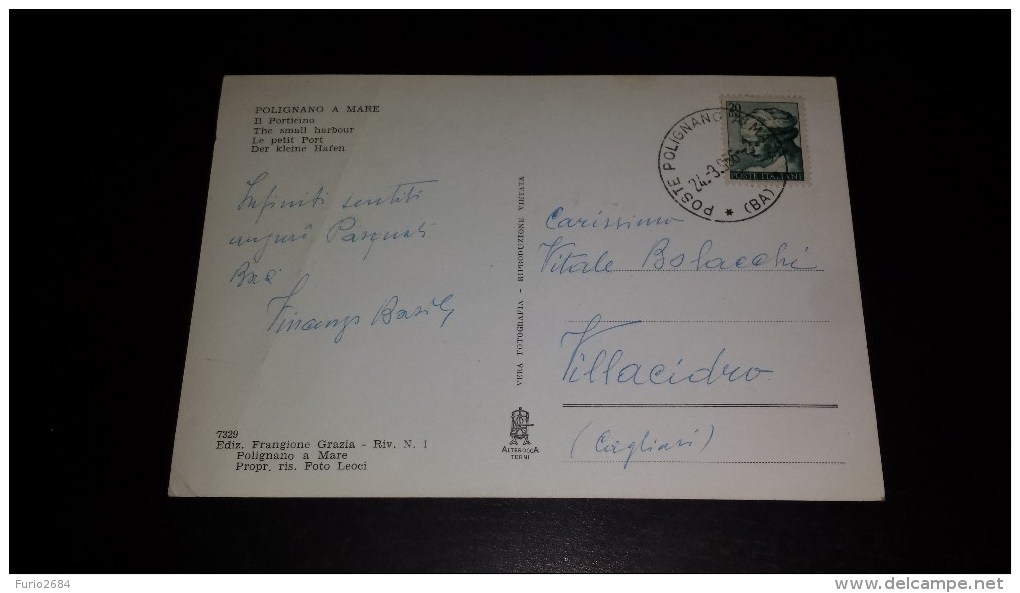 POLIGNANO A MARE
Il Porticino
The small harbour
Le petit Port
Der kleine Hafen
Infiniti sentiti
auguri Pasquali
Basily
7329
Ediz. Frangione Grazia - Riv. N. 1
Polignano a Mare
Propr. ris. Foto Leoci
VERA FOTOGRAFIA - RIPRODUZIONE VIETATA
ALTEROCCA
TERNI
20
POSTE ITALIANE
POSTE POLIGNANO A M
(BA)
Carissimo
Vitale Bolacchi
Villacidro
(Cagliari)
Furio2684
www.delcampe.net